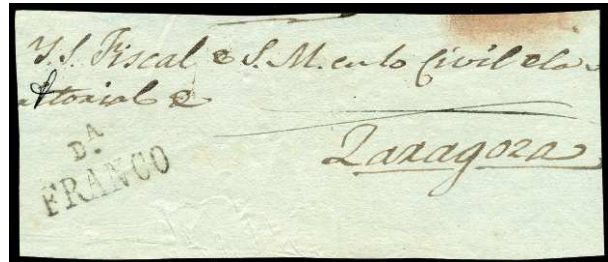 Y. S. Fiscal de S. M. en lo Civil de la
Zaragoza
DA
FRANCO